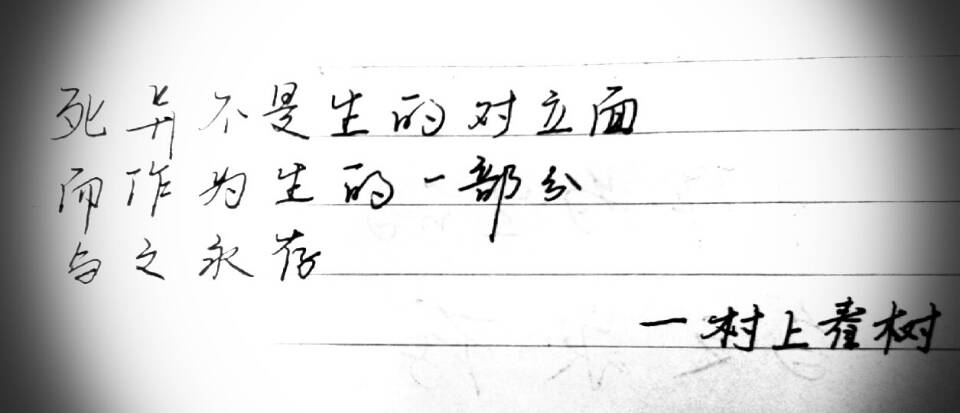 死并不是生的对立面
而作为生的一部分
与之永存
一村上春树